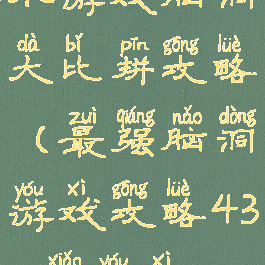 游戏脑洞
dà bǐ pīn gōng lüè
大比拼攻略
zuì qiáng nǎo dòng
(最强脑洞
yóu xì gōng lüè
游戏攻略43
xiǎo yóu xì